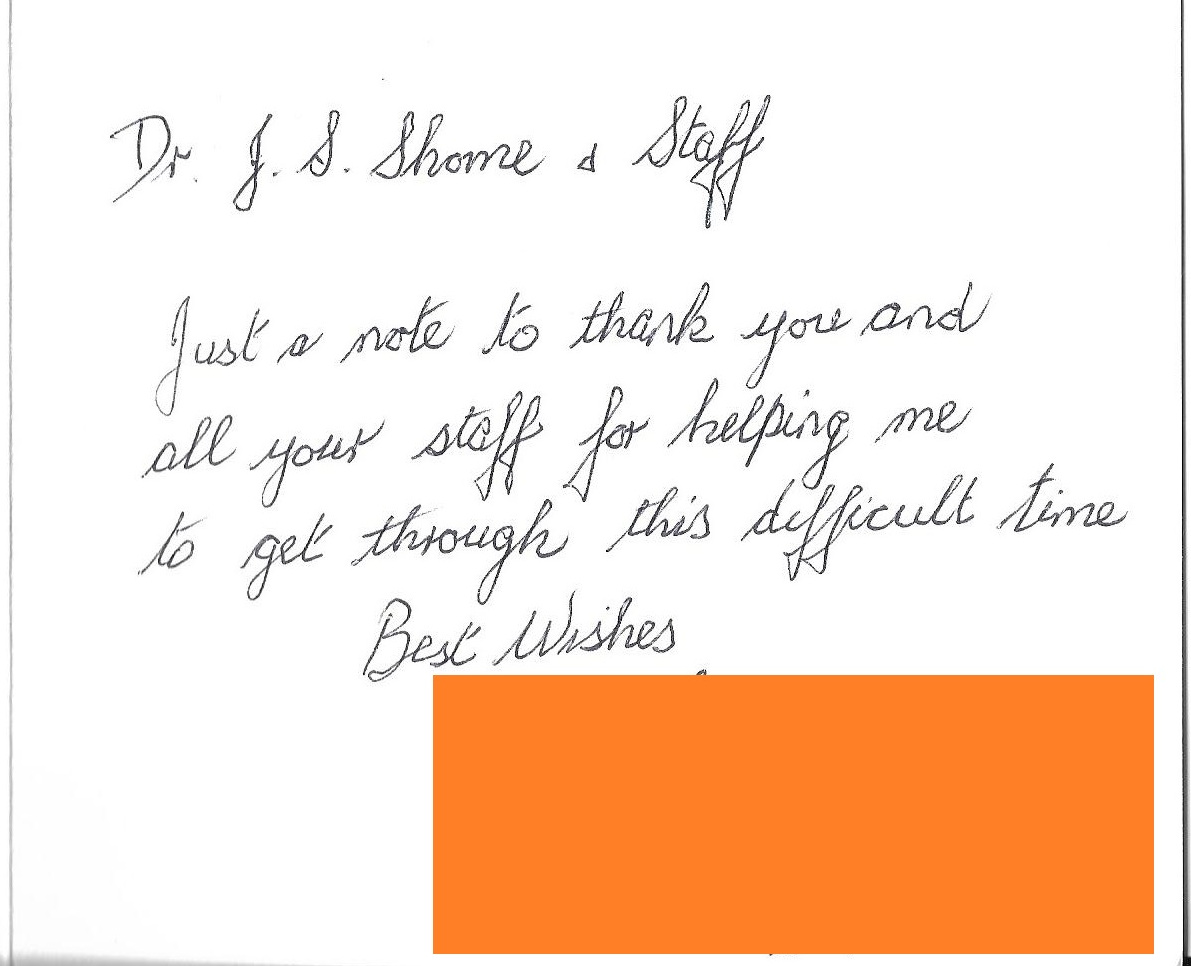 Dr. J. S. Shome & Staff
Just a note to thank you and
all your staff for helping me
to get through this difficult time
Best Wishes